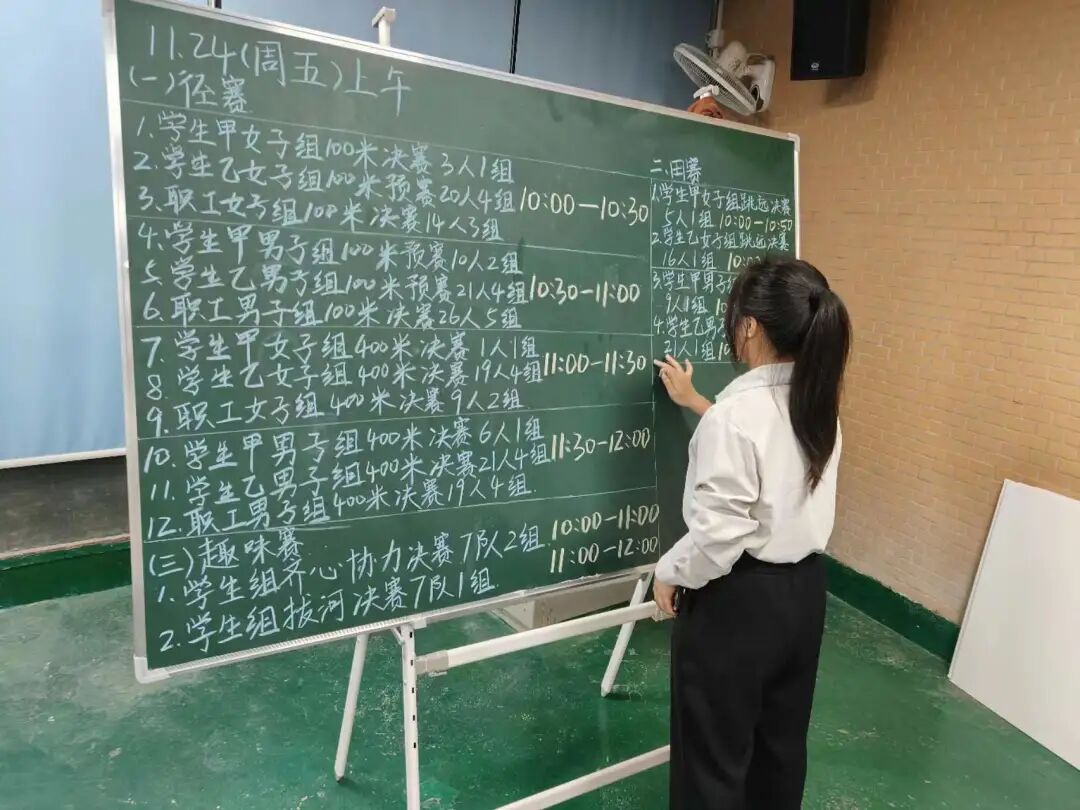 11.24(周五)上午
(一)径赛
1.学生甲女子组100米决赛 3人1组
2.学生乙女子组100米预赛20人4组
3.职工女子组100米决赛14人3组
10:00—10:30
4.学生甲男子组100米预赛10人2组
5.学生乙男子组100米预赛21人4组
6.职工男子组100米决赛26人5组
10:30—11:00
7.学生甲女子组400米决赛 1人1组
8.学生乙女子组400米决赛19人4组
9.职工女子组400米决赛9人2组
11:00—11:30
10.学生甲男子组400米决赛6人1组
11.学生乙男子组400米决赛21人4组
12.职工男子组400米决赛19人4组.
11:30—12:00
(三)趣味赛
1.学生组齐心协力决赛7队2组. 10:00—11:00
2.学生组拔河决赛7队1组. 11:00—12:00
二.田赛
1.学生甲女子组跳远决赛
5人1组 10:00—10:50
2.学生乙女子组跳远决赛
16人1组
3.学生甲男子
9人1组
4.学生乙男
21人1组